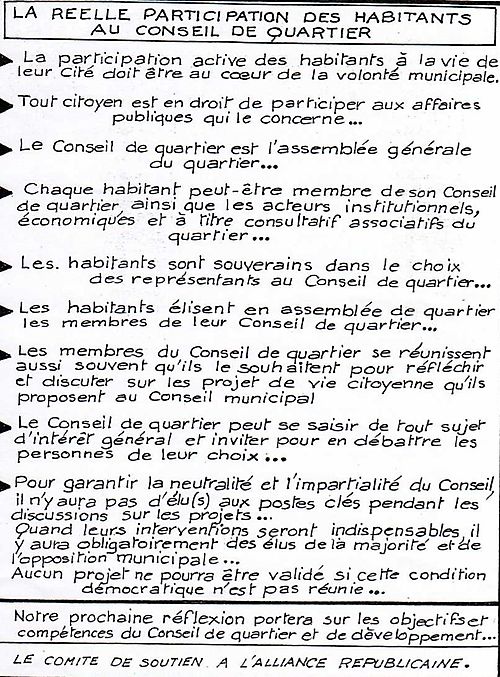 LA REELLE PARTICIPATION DES HABITANTS
AU CONSEIL DE QUARTIER
La participation active des habitants à la vie de
leur Cité doit être au cœur de la volonté municipale.
Tout citoyen est en droit de participer aux affaires
publiques qui le concerne...
Le Conseil de quartier est l'assemblée générale
du quartier...
Chaque habitant peut-être membre de son Conseil
de quartier, ainsi que les acteurs institutionnels,
économiques et à titre consultatif associatifs du
quartier...
Les. habitants sont souverains dans le choix
des représentants au Conseil de quartier...
Les habitants élisent en assemblée de quartier
les membres de leur Conseil de quartier...
Les membres du Conseil de quartier se réunissent
aussi souvent qu'ils le souhaitent pour réfléchir
et discuter sur les projet de vie citoyenne qu'ils
proposent au Conseil municipal
Le Conseil de quartier peut se saisir de tout sujet
d'intérêt général et inviter pour en débattrre les
personnes de leur choix ...
Pour garantir la neutralité et l'impartialité du Conseil,
il n'y aura pas d'élu(s) aux postes clés pendant les
discussions sur les projets...
Quand leurs interventions seront indispensables, il
y aura obligatoirement des élus de la majorité et de
l'opposition municipale...
Aucun projet ne pourra être validé si cette condition
démocratique n'est pas réunie...
Notre prochaine réflexion portera sur les objectifs et
compétences du Conseil de quartier et de développement...
LE COMITE DE SOUTIEN A L'ALLIANCE REPUBLICAINE.